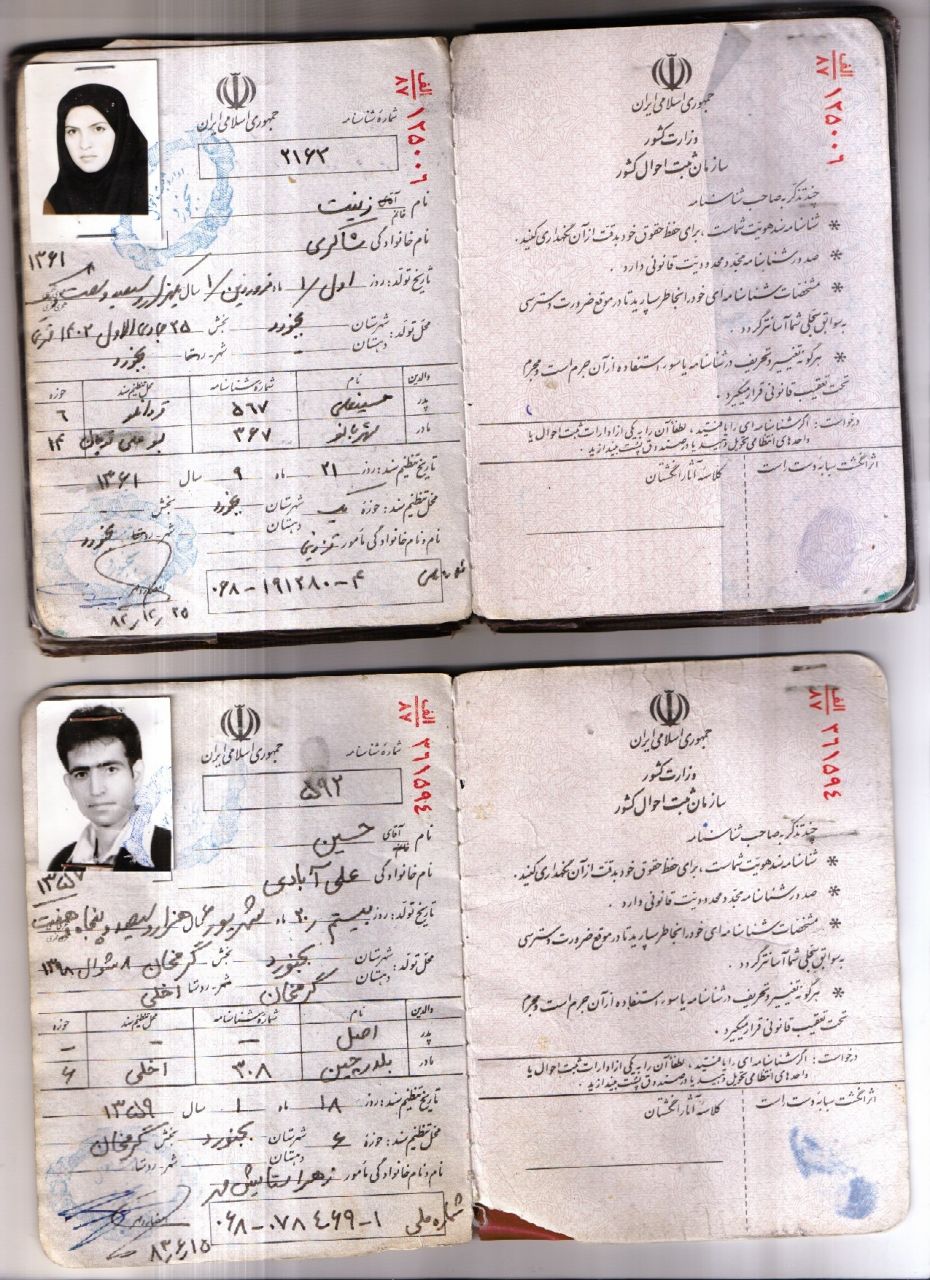 الف
۸۷
۱۲۵۰۰۶
جمهوری اسلامی ایران
شمارهٔ شناسنامه
۲۱۶۳
نام آقای خانم زینت
نام خانوادگی شاکری
۱۳۶۱
تاریخ تولد: روز اول /۱ ماه فروردین /۱ سال یکهزار و سیصد و شصت و یک
محل تولد: شهرستان بجنورد بخش ۲۵ جمادی الاول ۱۴۰۲ قمری
دهستان شهر-روستا بجنورد
والدین نام شمارهٔ شناسنامه محل تنظیم سند حوزه
پدر حسینعلی ۵۶۷ ۶
مادر ۳۶۷ ۱۴
تاریخ تنظیم سند: روز ۲۱ ماه ۹ سال ۱۳۶۱
محل تنظیم سند: حوزهٔ یک شهرستان بجنورد بخش -
دهستان شهر-روستا بجنورد
نام و نام خانوادگی مأمور
۰۶۸-۱۹۱۲۸۰-۴
۸۲/۱۲/۲۵
الف
۸۷
۱۲۵۰۰۶
جمهوری اسلامی ایران
وزارت کشور
سازمان ثبت احوال کشور
چند تذکر به صاحب شناسنامه
* شناسنامه سند هویت شماست، برای حفظ حقوق خود بدقت از آن نگهداری کنید.
* صدور شناسنامه مجدد محدودیت قانونی دارد.
* مشخصات شناسنامه‌ای خود را بخاطر بسپارید تا در موقع ضرورت دسترسی
به سوابق سجلی شما آسانتر گردد.
* هرگونه تغییر و تحریف در شناسنامه یا سوء استفاده از آن جرم است و مجرم
تحت تعقیب قانونی قرار میگیرد.
درخواست: اگر شناسنامه‌ای را یافتید، لطفاً آن را به یکی از ادارات ثبت احوال یا
واحدهای انتظامی تحویل دهید یا در صندوق پست بیندازید.
اثر انگشت سبابه دست راست
کلاسه آثار انگشتان
الف
۸۷
۳۶۱۵۹۴
جمهوری اسلامی ایران
شمارهٔ شناسنامه
۵۹۲
نام آقای خانم حسین
نام خانوادگی علی آبادی
۱۳۵۷
تاریخ تولد: روز بیستم ۲۰ ماه شهریور سال هزار و سیصد و پنجاه و هفت
محل تولد: شهرستان بجنورد بخش گرمخان ۸ شوال ۱۳۹۸
دهستان گرمخان شهر-روستا اخلی
والدین نام شمارهٔ شناسنامه محل تنظیم سند حوزه
پدر اصل - - -
مادر بلدرچین ۳۰۸ اخلی ۶
تاریخ تنظیم سند: روز ۱۸ ماه ۱ سال ۱۳۵۹
محل تنظیم سند: حوزهٔ ۶ شهرستان بجنورد بخش گرمخان
دهستان شهر-روستا
نام و نام خانوادگی مأمور زهرا ستایش مهر
شماره ملی ۰۶۸-۰۷۸۴۶۹-۱
۸۳/۶/۱۵
الف
۸۷
۳۶۱۵۹۴
جمهوری اسلامی ایران
وزارت کشور
سازمان ثبت احوال کشور
چند تذکر به صاحب شناسنامه
* شناسنامه سند هویت شماست، برای حفظ حقوق خود بدقت از آن نگهداری کنید.
* صدور شناسنامه مجدد محدودیت قانونی دارد.
* مشخصات شناسنامه‌ای خود را بخاطر بسپارید تا در موقع ضرورت دسترسی
به سوابق سجلی شما آسانتر گردد.
* هرگونه تغییر و تحریف در شناسنامه یا سوء استفاده از آن جرم است و مجرم
تحت تعقیب قانونی قرار میگیرد.
درخواست: اگر شناسنامه‌ای را یافتید، لطفاً آن را به یکی از ادارات ثبت احوال یا
واحدهای انتظامی تحویل دهید یا در صندوق پست بیندازید.
اثر انگشت سبابه دست راست
کلاسه آثار انگشتان